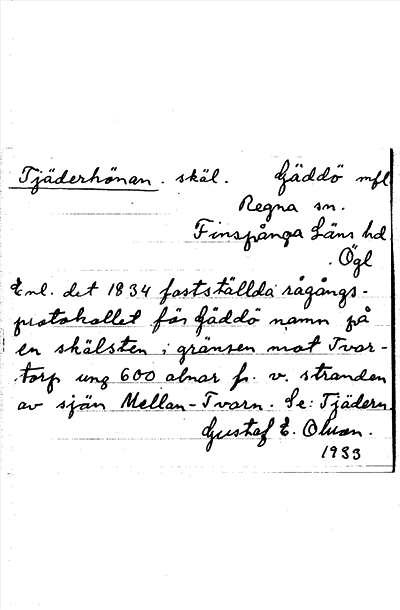 Tjäderhönan. skäl. Gäddö mfl
Regna sn.
Finspånga Läns hd
. Ögl
Enl. det 1834 fastställda rågångs-
protokollet för Gäddö namn på
en skälsten i gränsen mot Tvar-
torp ung 600 alnar fr. v. stranden
av sjön Mellan-Tvarn. Se: Tjädern.
Gustaf E. Olsson.
1933